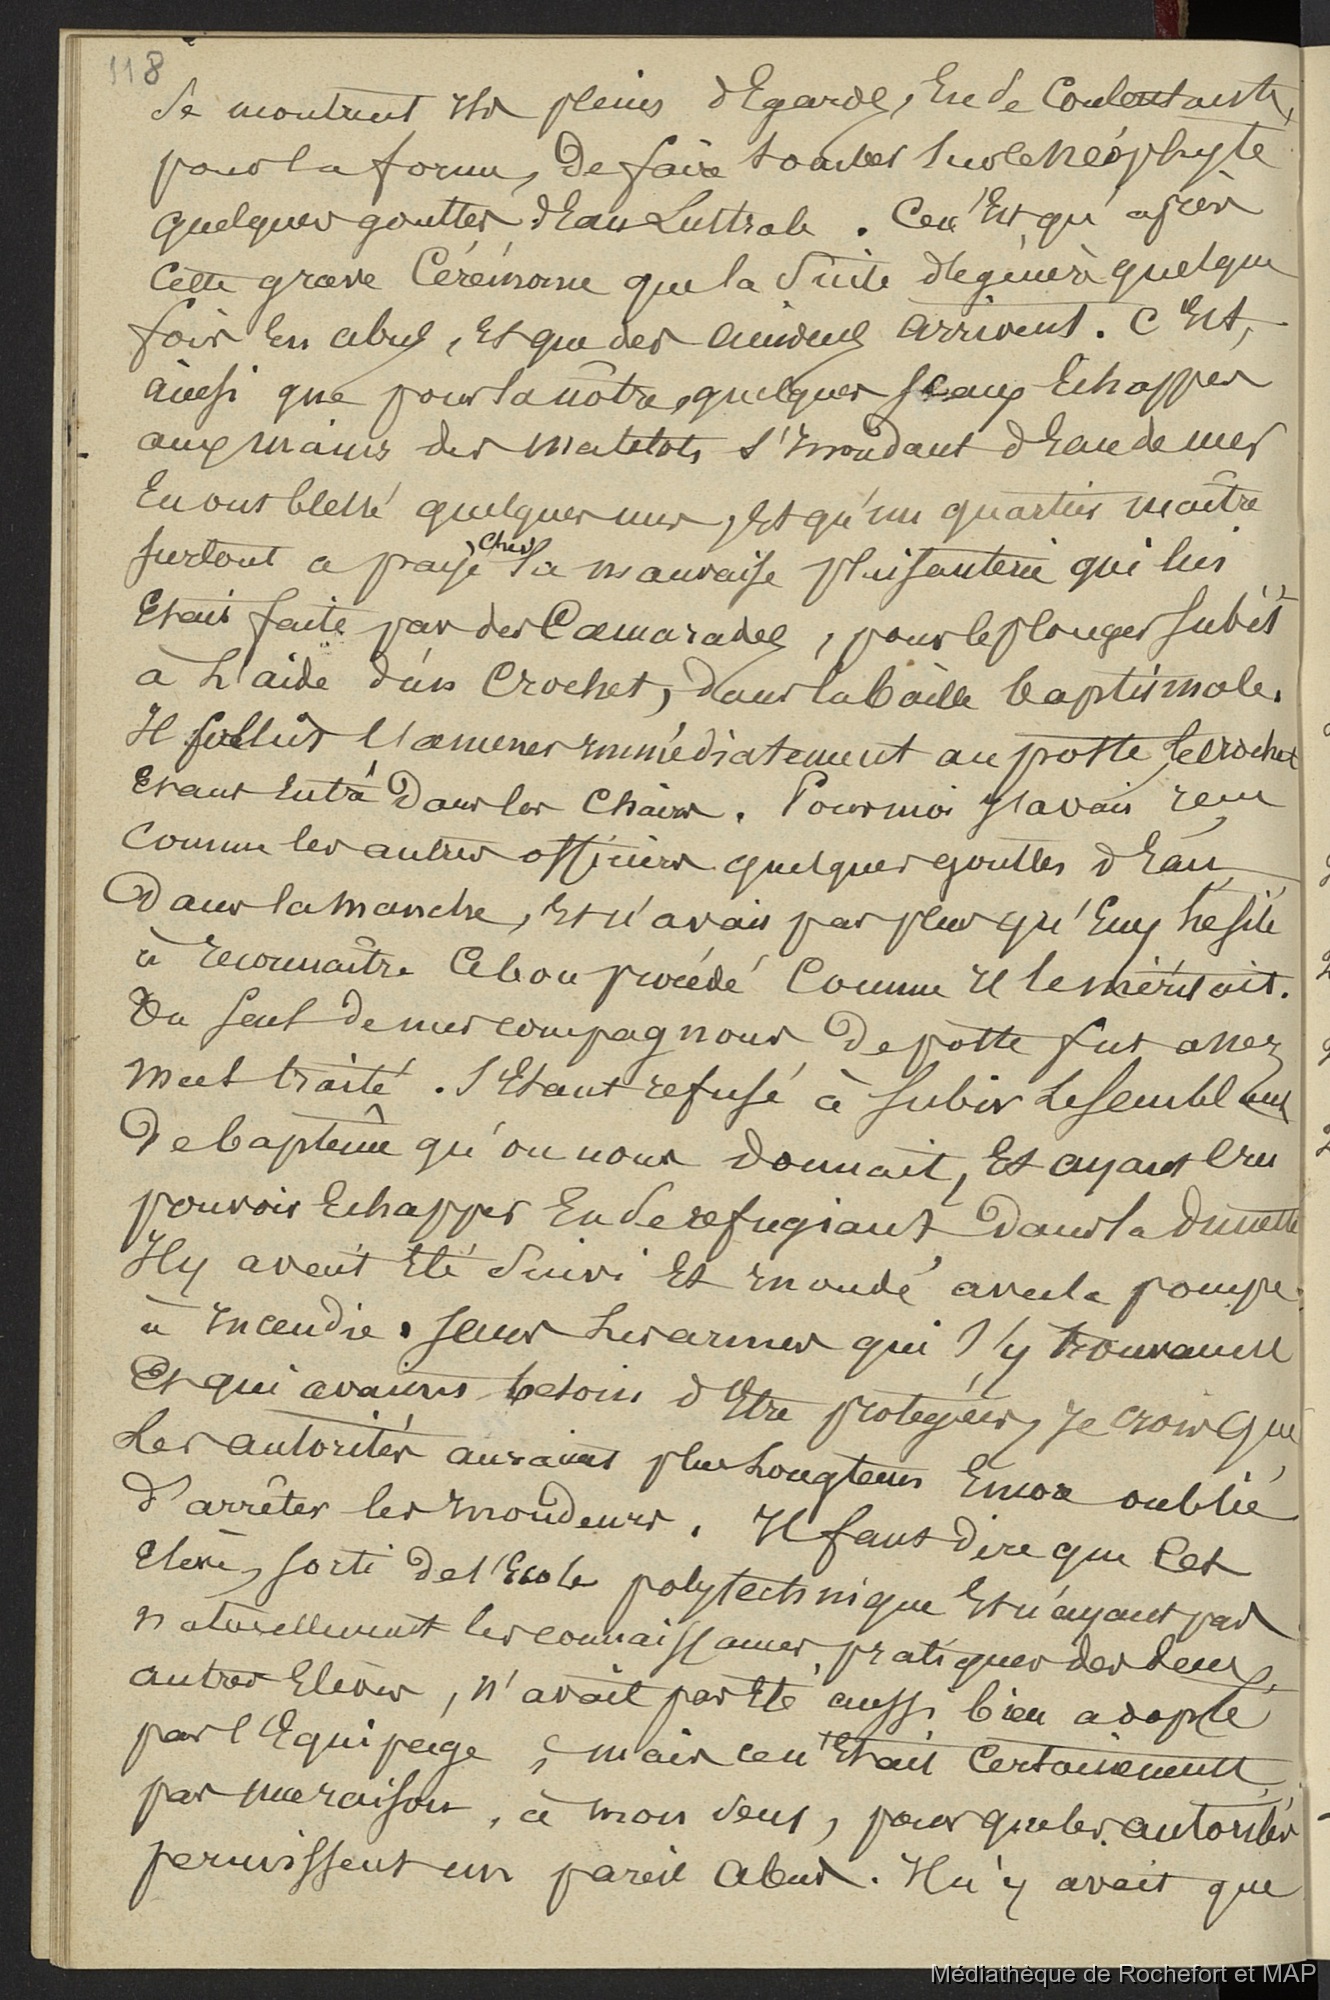 118
se montrent ils pleins d'Egards, En se Contentant,
pour la forme, de faire tomber sur le néophyte
quelques gouttes d'Eau Lustrale. Ce n'Est qu'après
Cette grave Cérémonie que la Suite dégénère quelque
fois En abus, Et que des accidens arrivent. C'Est,
ainsi que pour la nôtre, quelques sceaux Echappés
aux mains des matelots s'inondant d'Eau de mer
En ont blessé quelques uns, Et qu'un quartier maître
surtout a payé cher la mauvaise plaisanterie qui lui
Etait faite par des Camarades, pour le plonger subit
à L'aide d'un Crochet, dans la baille baptismale.
Il fallut l'amener immédiatement au poste, le crochet
Etant Entré Dans les Chairs. Pour moi j'avais reçu
Comme les autres officiers quelques gouttes d'Eau
Dans la manche, Et n'avais pas plus qu'Eux hésité
à reconnaître Ce bon procédé Comme il le méritait.
Un seul de mes compagnons De poste fut assez
maltraité. S'Etant refusé à subir Le semblant
De baptême qu'on nous donnait, Et ayant Cru
pouvoir Echapper En se refugiant Dans la dunette
Il y avait Eté Suivi Et inondé avec la pompe
à incendie. Sans Les armes qui s'y trouvaient
Et qui avaient besoin d'Etre protégées, je crois que
Les autorités auraient plus Longtems Encore oublié
d'arrêter les inondeurs. Il faut dire que Cet
Elève, sorti de l'Ecole polytechnique Et n'ayant pas
naturellement les connaissances pratiques des deux
autres Elèves, n'avait pas Eté aussi bien adopté
par l'Equipage, mais ce n'Etait Certainement
pas une raison, à mon sens, pour que les autorités
permissent un pareil Abus. Il n'y avait que
Médiathèque de Rochefort et MAP